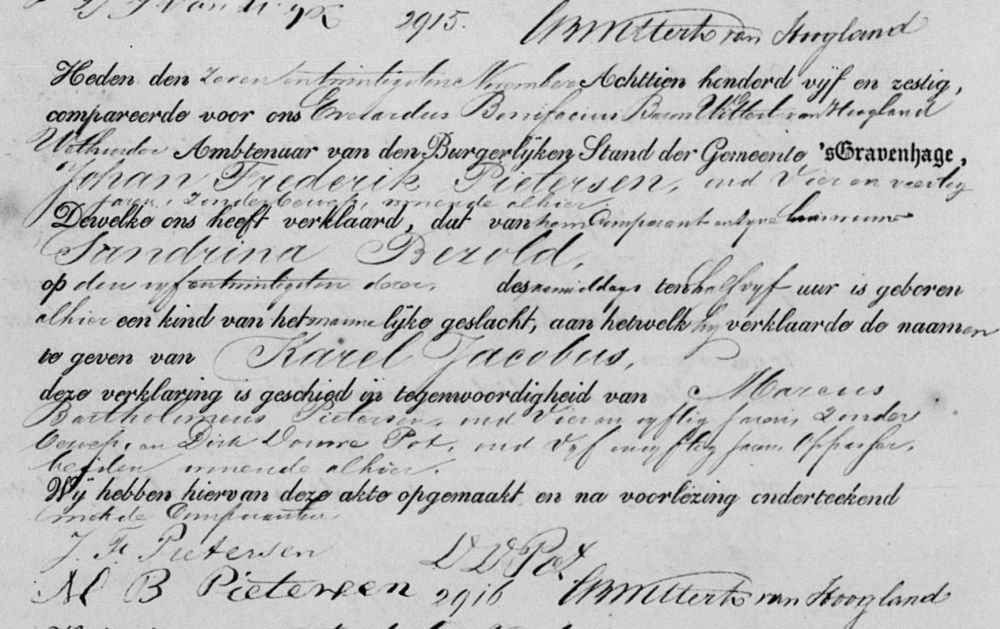 2915. van Hoogland
Heden den zeven en twintigsten November Achttien honderd vijf en zestig,
compareerde voor ons Everardus Bonifacius Baron Wittert van Hoogland
Wethouder Ambtenaar van den Burgerlijken Stand der Gemeente 'sGravenhage,
Johan Frederik Pietersen, oud Vier en veertig
jaren, Zonder beroep, wonende alhier
Dewelke ons heeft verklaard, dat van hem Comparant en zyne huisvrouw
Sandrina Bezold,
op den vyf en twintigsten dezer, des namiddags ten half vyf uur is geboren
alhier een kind van het mannelijke geslacht, aan hetwelk hy verklaarde de naamen
te geven van Karel Jacobus,
deze verklaring is geschied in tegenwoordigheid van Marcus
Bartholomeus Pietersen, oud Vier en vyftig jaren, Zonder
beroep, en Dirk Douwe Pot, oud Vyf en vyftig jaren, Oppasser,
beiden wonende alhier.
Wij hebben hiervan deze akte opgemaakt en na voorlezing onderteekend
met de Comparanten
J F Pietersen D D Pot
M B Pietersen 2916 van Hoogland